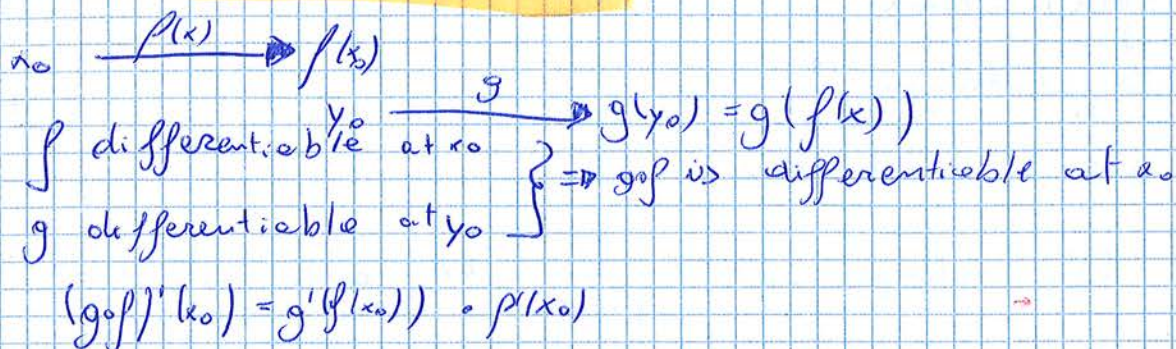 x₀ f(x) → f(x₀)
y₀ g → g(y₀) = g(f(x))
f differentiable at x₀
g differentiable at y₀ } => g∘f is differentiable at x₀
(g∘f)'(x₀) = g'(f(x₀)) · f'(x₀)